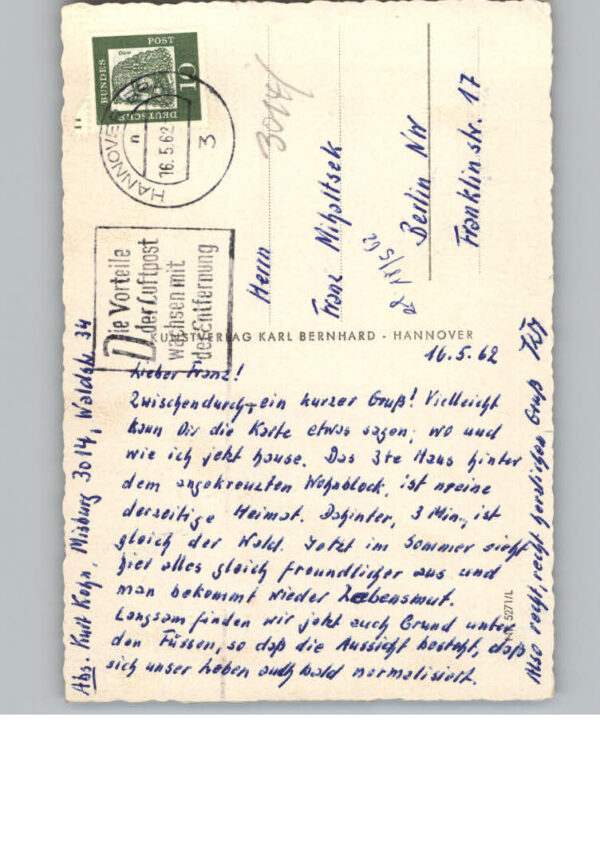 BUNDES POST
Dürer
10
DEUTSCHE
HANNOVER
n
16.5.62
3
Die Vorteile
der Luftpost
wachsen mit
der Entfernung
3014
Herrn
Franz Miholtsek
Berlin NW
Franklinstr. 17
KUNSTVERLAG KARL BERNHARD - HANNOVER
16.5.62
Lieber Franz!
Zwischendurch ein kurzer Gruß! Vielleicht
kann Dir die Karte etwas sagen, wo und
wie ich jetzt hause. Das 3te Haus hinter
dem angekreuzten Wohnblock, ist meine
derzeitige Heimat. Dahinter, 3 Min., ist
gleich der Wald. Jetzt im Sommer sieht
hier alles gleich freundlicher aus und
man bekommt wieder Lebensmut.
Langsam finden wir jetzt auch Grund unter
den Füssen, so daß die Aussicht besteht, daß
sich unser Leben auch bald normalisiert.
Also recht, recht herzlichen Gruß
Abs. Kurt Kohn, Misburg 3014, Waldstr. 34
5271/L